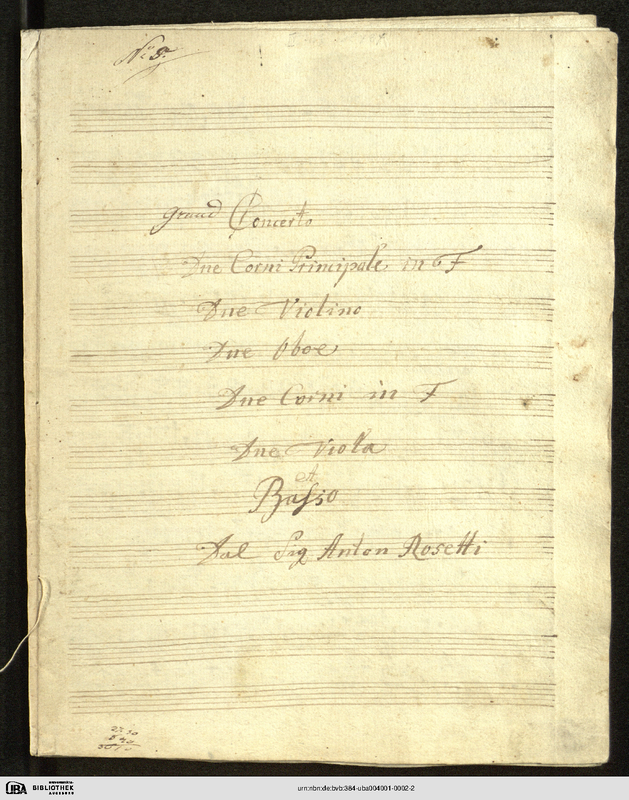 No 8.
Grand Concerto
Due Corni Principale in F
Due Violino
Due Oboe
Due Corni in F
Due Viola
et
Basso
Dal Sig Anton Rosetti
UBA UNIVERSITÄTS-
BIBLIOTHEK
AUGSBURG
urn:nbn:de:bvb:384-uba004001-0002-2